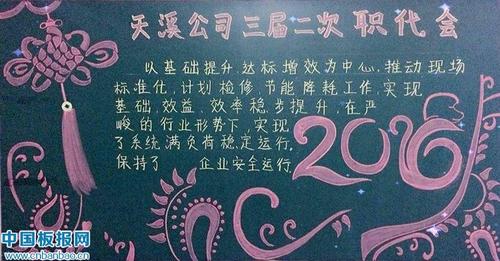 天溪公司三届二次职代会
以基础提升,达标增效为中心,推动现场
标准化,计划检修,节能降耗工作,实现
基础,效益,效率稳步提升,在严
峻的行业形势下,实现
了系统满负荷稳定运行,
保持了 企业安全运行
2016
中国板报网
www.cnbanbao.cn